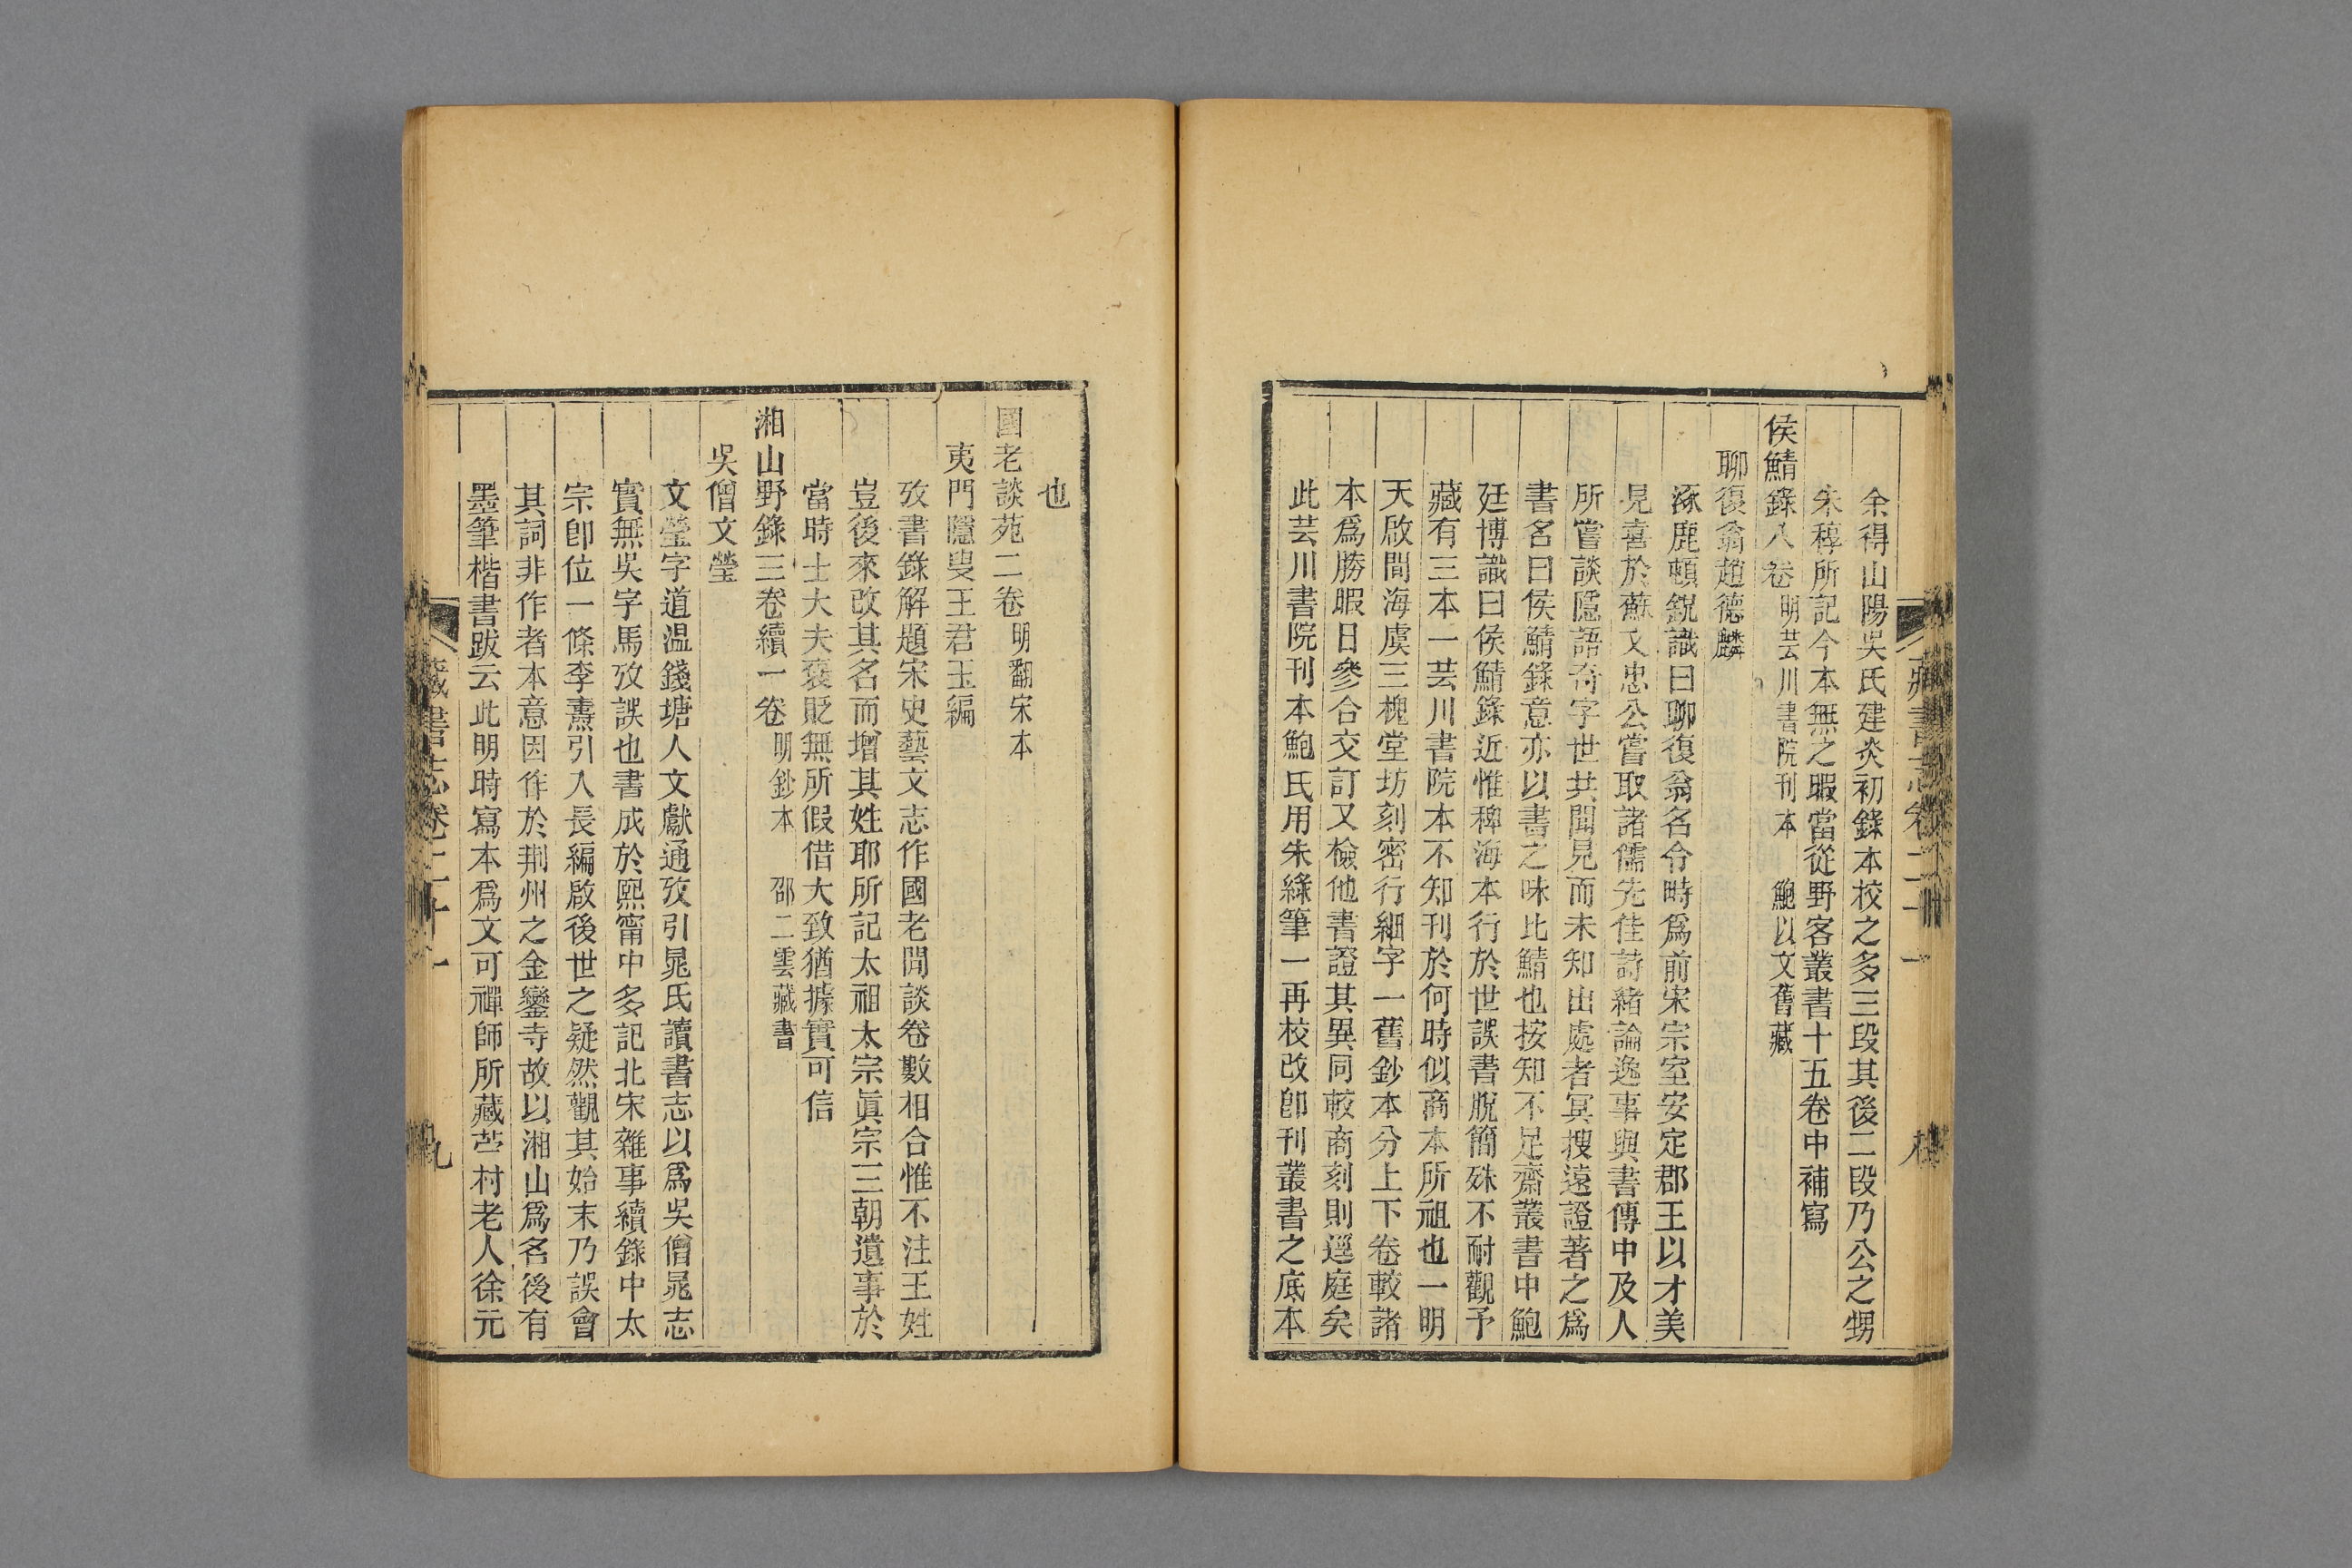 藏書志卷二十一
余得山陽吳氏建炎初錄本校之多三段其後二段乃公之甥
朱䅵所記今本無之暇當從野客叢書十五卷中補寫
侯鯖錄八卷 明芸川書院刊本 鮑以文舊藏
聊復翁趙德麟
涿鹿頓銳識曰聊復翁名令畤爲前宋宗室安定郡王以才美
見喜於蘇文忠公嘗取諸儒先佳詩緒論逸事與書傳中及人
所嘗談隱語奇字世共聞見而未知出處者冥搜遠證著之爲
書名曰侯鯖錄意亦以書之味比鯖也按知不足齋叢書中鮑
廷博識曰侯鯖錄近惟稗海本行於世誤書脫簡殊不耐觀予
藏有三本一芸川書院本不知刊於何時似商本所祖也一明
天啟間海虞三槐堂坊刻密行細字一舊鈔本分上下卷較諸
本爲勝暇日參合交訂又檢他書證其異同較商刻則逕庭矣
此芸川書院刊本鮑氏用朱綠筆一再校改卽刊叢書之底本
也
國老談苑二卷 明翻宋本
夷門隱叟王君玉編
攷書錄解題宋史藝文志作國老閒談卷數相合惟不注王姓
豈後來改其名而增其姓耶所記太祖太宗眞宗三朝遺事於
當時士大夫褒貶無所假借大致猶據實可信
湘山野錄三卷續一卷 明鈔本 邵二雲藏書
吳僧文瑩
文瑩字道温錢塘人文獻通攷引晁氏讀書志以爲吳僧晁志
實無吳字馬攷誤也書成於熙甯中多記北宋雜事續錄中太
宗卽位一條李燾引入長編啟後世之疑然觀其始末乃誤會
其詞非作者本意因作於荆州之金鑾寺故以湘山爲名後有
墨筆楷書跋云此明時寫本爲文可禪師所藏苎村老人徐元
藏書志卷二十一
九